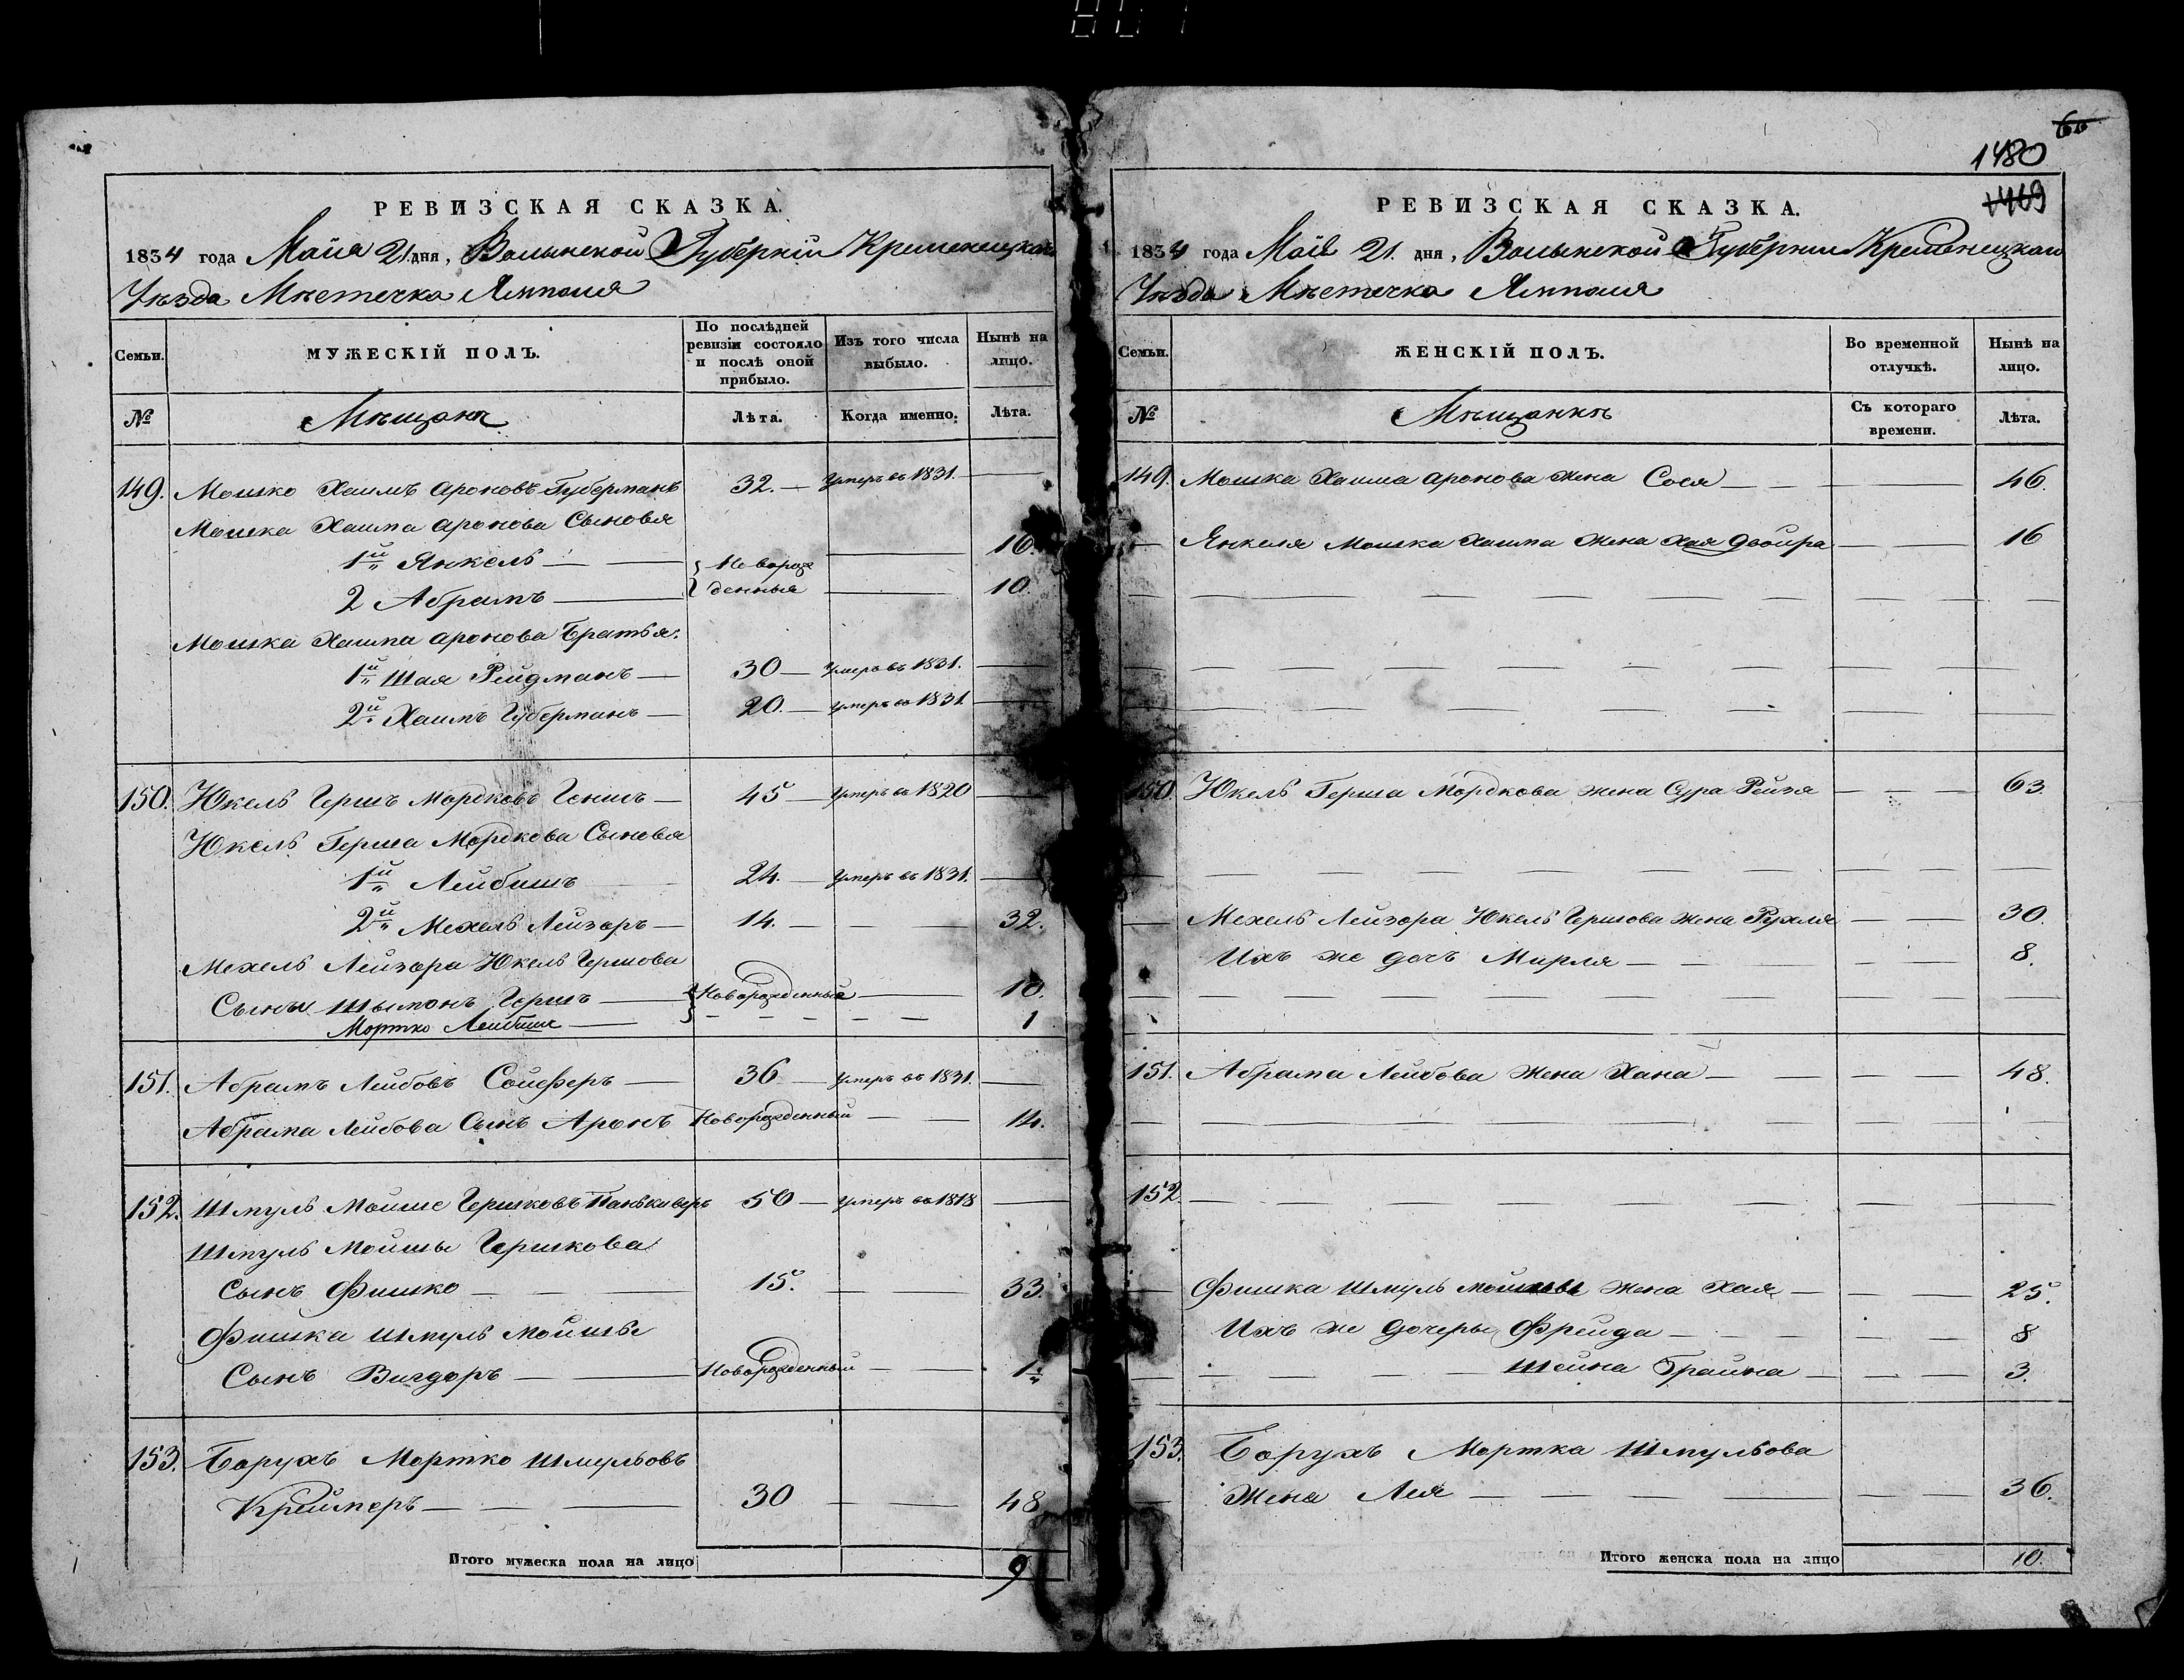 60
1480
1469
РЕВИЗСКАЯ СКАЗКА.
1834 года Маия 21 дня, Волынской Губернии Кременецкаго
Уѣзда Мѣстечка Ямполя
Семьи. МУЖЕСКІЙ ПОЛЪ. По послѣдней ревизіи состояло и послѣ оной прибыло. Изъ того числа выбыло. Нынѣ на лицо.
№ Мѣщанѣ Лѣта. Когда именно. Лѣта.
149. Мошко Хаимъ Ароновъ Губерманъ 32. — Умеръ въ 1831. —
Мошка Хаима Аронова Сыновья
1й Янкель — Новорож 16.
2 Абрамъ — денныя 10.
Мошка Хаима Аронова Братья:
1й Шая Рейдманъ — 30 — Умеръ въ 1831. —
2й Хаимъ Губерманъ — 20. — Умеръ въ 1831. —
150. Юкель Гершъ Мордковъ Геншъ — 45 — Умеръ въ 1820 —
Юкель Герша Мордкова Сыновья
1й Лейбишъ 24. — Умеръ въ 1831. —
2й Мехель Лейзоръ — 14. — — — 32.
Мехель Лейзора Юкель Гершова
Сыны Шымонъ Гершъ — Новорожденный — 10.
Мортко Лейбишъ — 1
151. Абрамъ Лейбовъ Сойферъ — 36 — Умеръ въ 1831. —
Абрама Лейбова Сынъ Аронъ Новорожденный — — 14.
152. Шмуль Мойше Гершковъ Панькиверъ 50 — Умеръ въ 1818 —
Шмуль Мойшы Гершкова
Сынъ Фишко — — 15. — — 33.
Фишка Шмуль Мойшы
Сынъ Вигдоръ — Новорожденный — — 1
153. Борухъ Мортко Шмульовъ
Креймеръ — — 30 — — 48
Итого мужеска пола на лицо 9
РЕВИЗСКАЯ СКАЗКА.
1834 года Маія 21. дня, Волынской Губернии Кременецкаго
Уѣзда Мѣстечка Ямполя
Семьи. ЖЕНСКІЙ ПОЛЪ. Во временной отлучкѣ. Нынѣ на лицо.
№ Мѣщанкѣ Съ котораго времени. Лѣта.
149. Мошка Хаима Аронова жена Сося — — 46.
Янкеля Мошка Хаима жена Хая Двойра — — 16
150. Юкель Герша Мордкова жена Сура Рейзя — — 63.
Мехель Лейзора Юкель Гершова жена Рухля — — 30.
Ихъ же дочь Мирля — — 8.
151. Абрама Лейбова жена Хана — — 48.
152.
Фишка Шмуль Мойшовы жена Хая — — 25.
Ихъ же дочеры Фрейда — — 8
Шейна Брайна — — 3.
153. Борухъ Мортка Шмульова
жена Лея — — 36.
Итого женска пола на лицо 10.